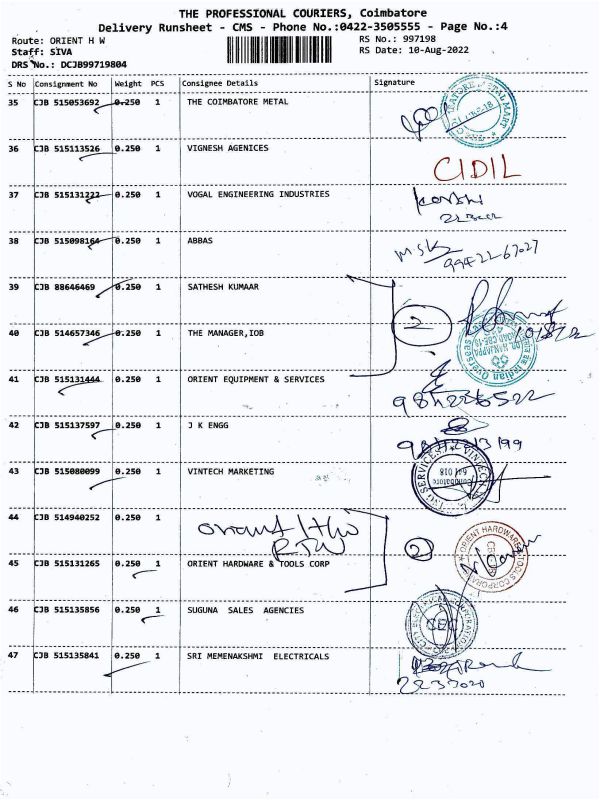 THE PROFESSIONAL COURIERS, Coimbatore
Delivery Runsheet - CMS - Phone No.:0422-3505555 - Page No.:4
Route: ORIENT H W
RS No.: 997198
Staff: SIVA
RS Date: 10-Aug-2022
DRS No.: DCJB99719804
S No Consignment No Weight PCS Consignee Details Signature
35 CJB 515053692 0.250 1 THE COIMBATORE METAL
36 CJB 515113526 0.250 1 VIGNESH AGENICES
CIDIL
37 CJB 515131222 0.250 1 VOGAL ENGINEERING INDUSTRIES
38 CJB 515098164 0.250 1 ABBAS
99422-67027
39 CJB 88646469 0.250 1 SATHESH KUMAAR
2
40 CJB 514657346 0.250 1 THE MANAGER,IOB
41 CJB 515131444 0.250 1 ORIENT EQUIPMENT & SERVICES
42 CJB 515137597 0.250 1 J K ENGG
43 CJB 515080099 0.250 1 VINTECH MARKETING
44 CJB 514940252 0.250 1
2
45 CJB 515131265 0.250 1 ORIENT HARDWARE & TOOLS CORP
ORIENT HARDWARE & TOOLS CORPORATION
46 CJB 515135856 0.250 1 SUGUNA SALES AGENCIES
47 CJB 515135841 0.250 1 SRI MEMENAKSHMI ELECTRICALS